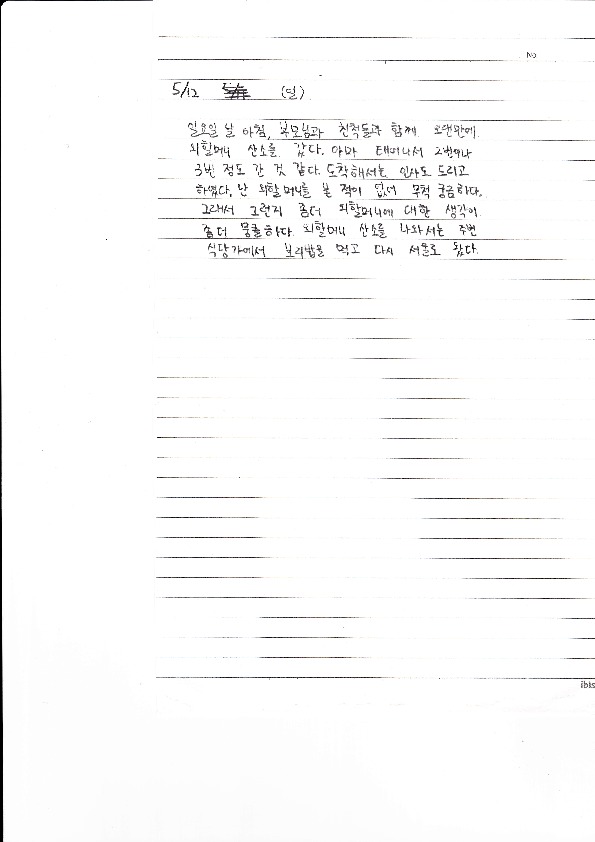 No
5/12 (일)
일요일 날 아침, 부모님과 친척들과 함께 오랜만에
외할머니 산소를 갔다. 아마 태어나서 2번이나
3번 정도 간 것 같다. 도착해서는 인사도 드리고
하였다. 난 외할머니를 본 적이 없어 무척 궁금하다.
그래서 그런지 좀더 외할머니에 대한 생각이
좀더 뭉클하다. 외할머니 산소를 나와서는 주변
식당가에서 보리밥을 먹고 다시 서울로 왔다.
ibis